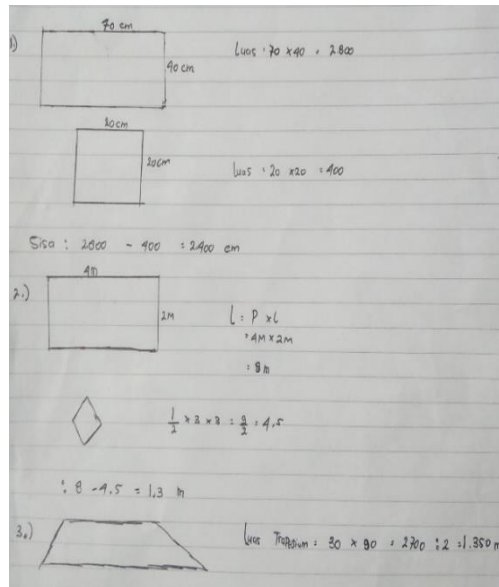 70 cm
1)
Luas : 70 x 40 = 2800
40 cm
20cm
20cm
Luas : 20 x20 = 400
Sisa : 2800 - 400 = 2400 cm
4m
2.)
2M
L = P x L
= 4M x 2M
= 8 m
1/2 x 3 x 3 = 9/2 = 4.5
: 8 - 4.5 = 1.3 m
3.)
Luas Trapesium = 30 x 90 = 2700 : 2 = 1.350 m